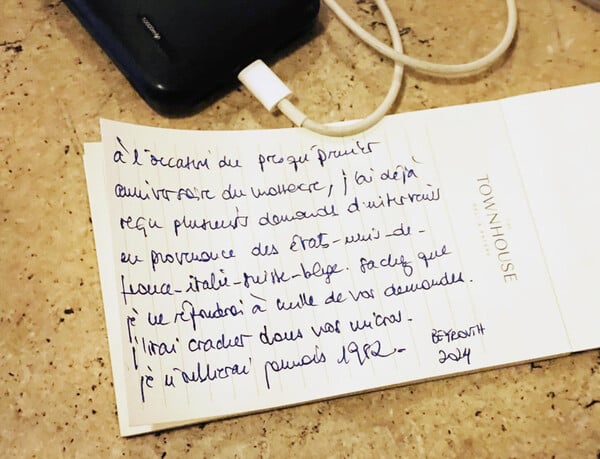 à l'occasion du presqu'premier
anniversaire du massacre, j'ai déjà
reçu plusieurs demands d'interviews
en provenance des états-unis-de-
france-italie-suisse-belge. sachez que
je ne répondrai à nulle de vos demandes.
j'irai cracher dans vos micros.
je n'oublierai jamais 1982.-
BEYROUTH
2024
TOWNHOUSE